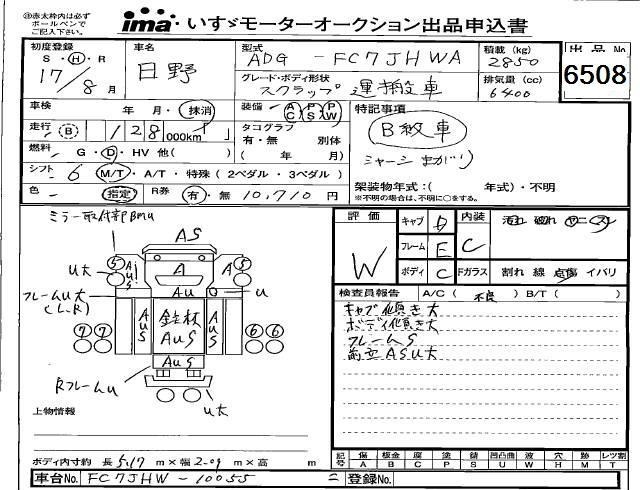 ㊟赤太枠内は必ず
ボールペンで
ご記入下さい。
ima いすゞモーターオークション出品申込書
初度登録 S・H・R 17/8月
車名 日野
型式 ADG-FC7JHWA
積載(kg) 2850
出品No 6508
グレード・ボディ形状 スクラップ運搬車
排気量(cc) 6400
車検 年 月・抹消
装備 AC PS PW
特記事項
走行 (B) 128,000km
タコグラフ 有・無 別体 ( 年 月)
B級車
燃料 G・D・HV 他( )
シャーシまがり
シフト 6 M/T・A/T・特殊(2ペダル・3ペダル)
架装物年式:( 年式)・不明
色 指定 R券 有・無 10,710円
*不明の場合は、不明に○をする。
ミラー取付部Bmu
AS
評価 W
キャブ D
内装 C
汚れ 破れ
フレーム E
ボディ C
Fガラス 割れ 線 点傷 イバリ
5 AuS A A 5
U大
Au u
フレームu大
(L,R)
検査員報告 A/C(不良) B/T( )
キャブ傾き大
ボディ傾き大
フレームS
前立ASU大
7 7 AuS 鉄材 AuS AuS 6 6
AuS
Rフレームu
u大
上物情報
ボディ内寸約 長 5.17 m×幅 2.09 m×高 m
記号 傷A 板金B 腐C 塗P 錆S 凹凸U 曲 波W 穴H 跡M レツ割T
車台No. FC7JHW-10055
登録No.